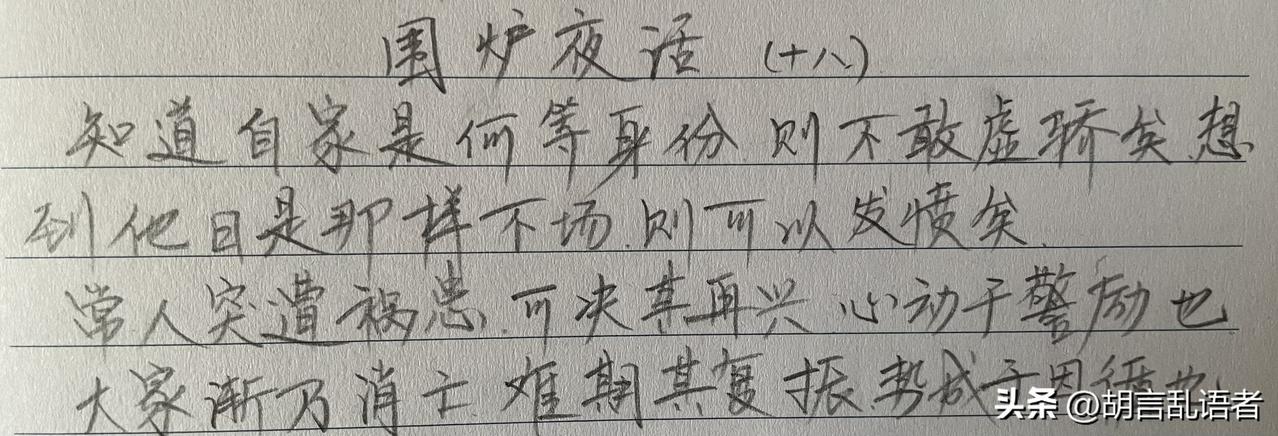 围炉夜话 (十八)
知道自家是何等身份.则不敢虚骄矣.想
到他日是那样下场.则可以发愤矣.
常人突遭祸患.可决其再兴 心动于警励也
大家渐乃消亡 难期其复振.势成于因循也.
头条 @胡言乱语者